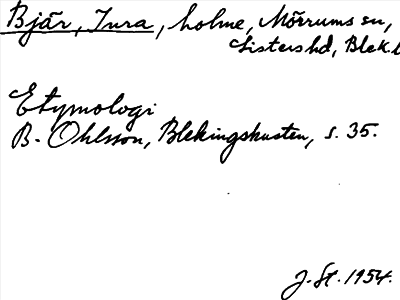 Bjär, Tura, holme, Mörrums sn,
Listers hd, Blek.l
Etymologi
B. Ohlsson, Blekingskusten, s. 35.
J. St. 1954.